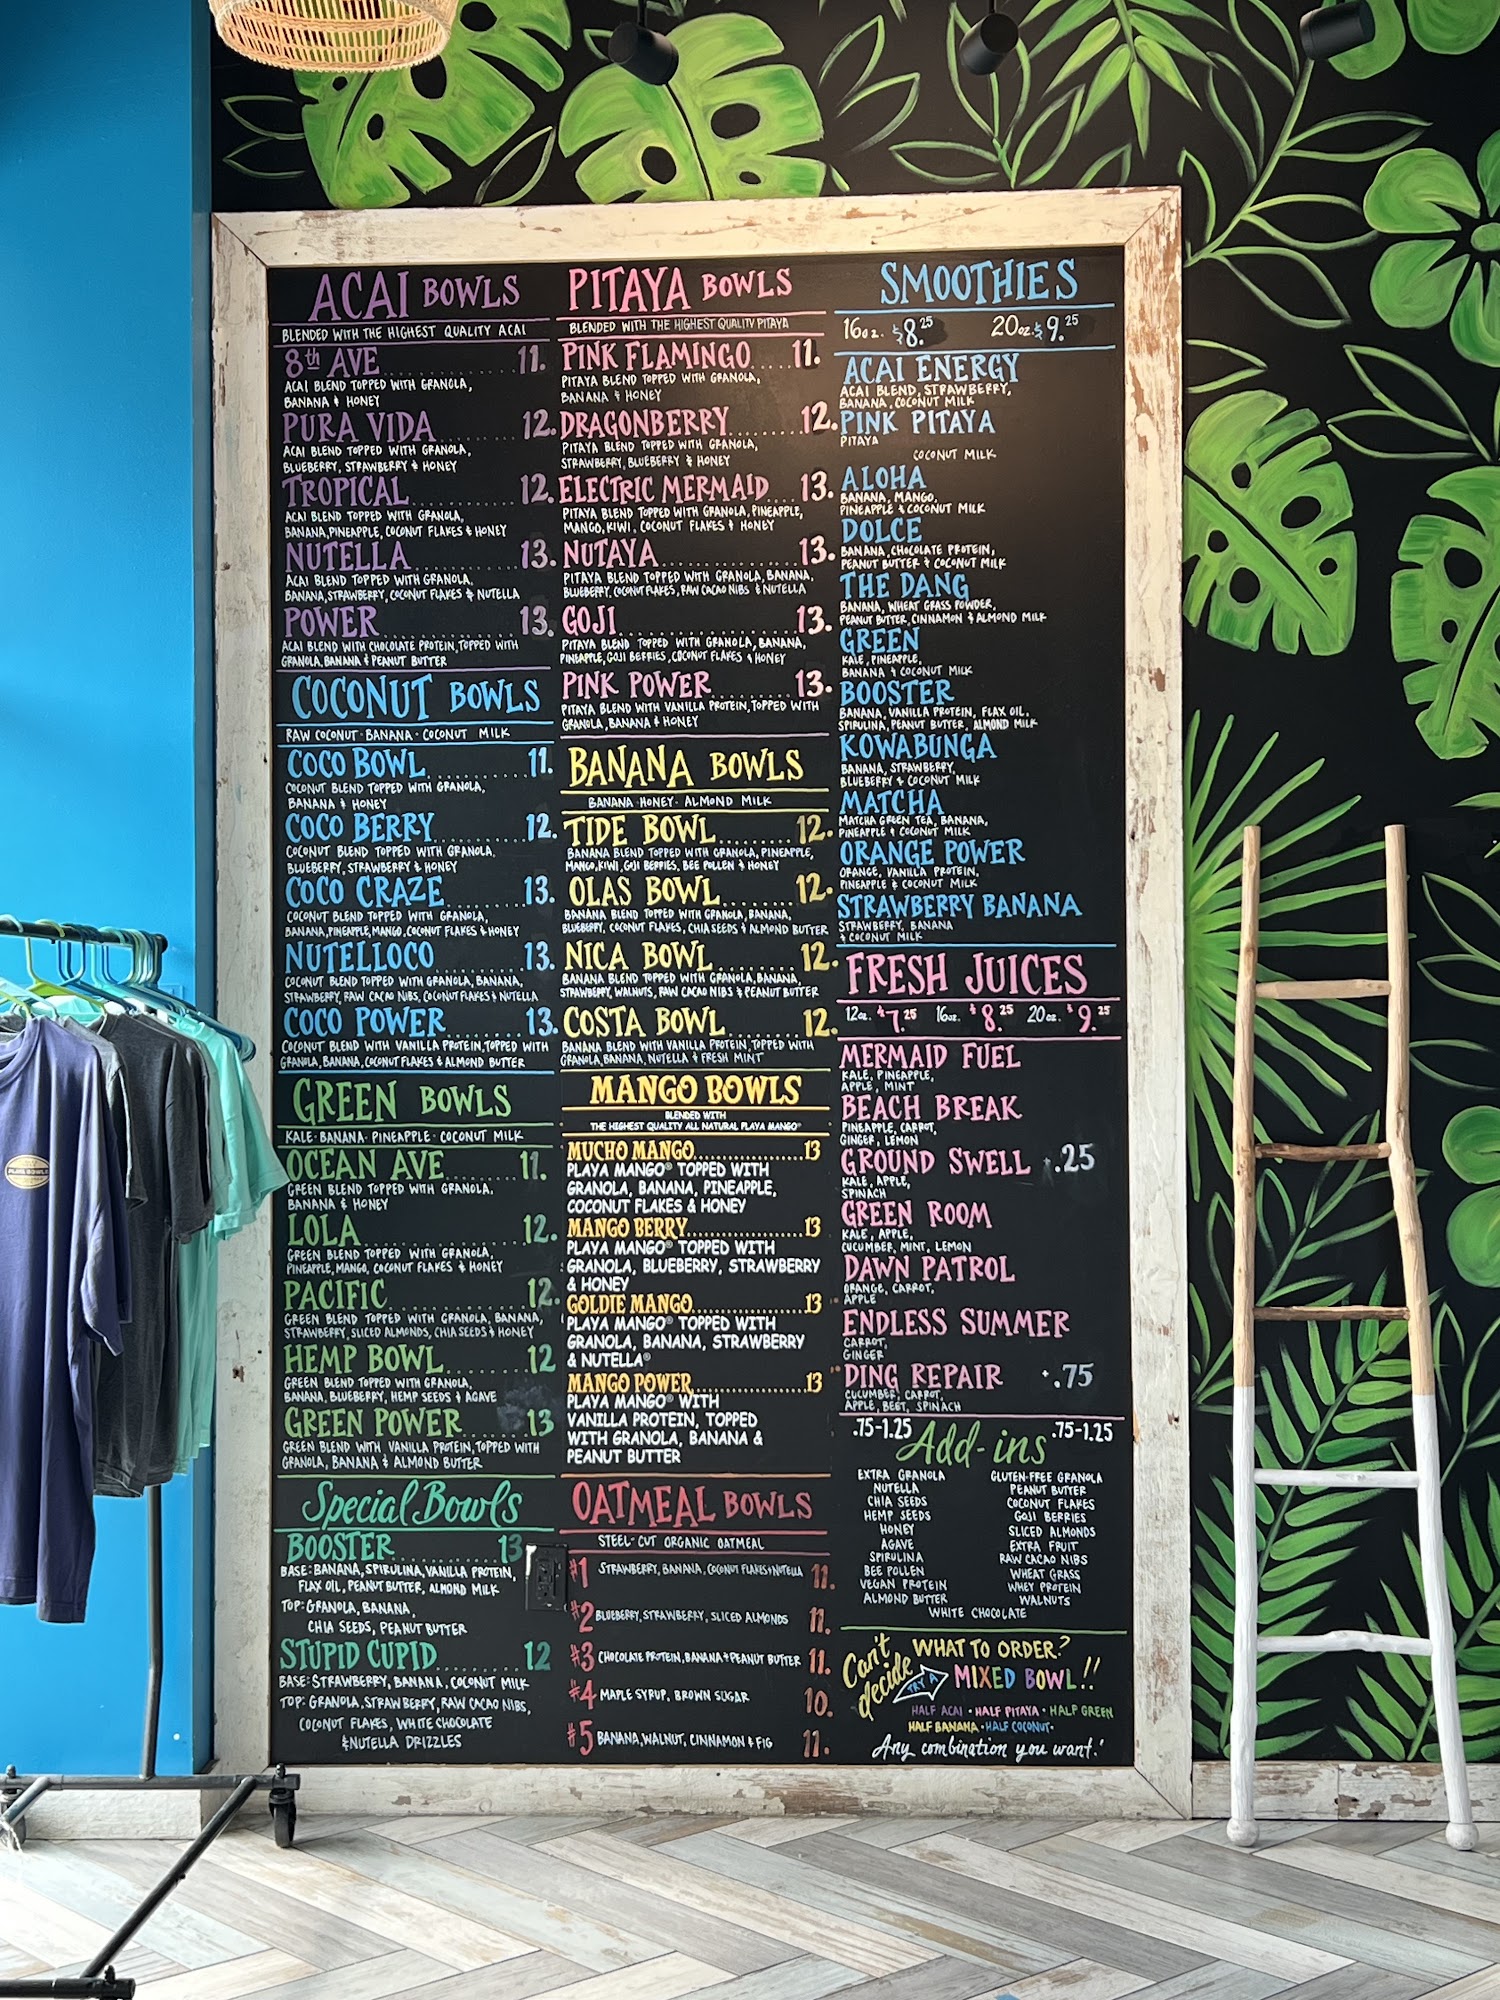 ACAI BOWLS
BLENDED WITH THE HIGHEST QUALITY ACAI
8th AVE............11.
ACAI BLEND TOPPED WITH GRANOLA,
BANANA & HONEY
PURA VIDA........12.
ACAI BLEND TOPPED WITH GRANOLA,
BLUEBERRY, STRAWBERRY & HONEY
TROPICAL..........12.
ACAI BLEND TOPPED WITH GRANOLA,
BANANA, PINEAPPLE, COCONUT FLAKES & HONEY
NUTELLA..........13.
ACAI BLEND TOPPED WITH GRANOLA,
BANANA, STRAWBERRY, COCONUT FLAKES & NUTELLA
POWER............13.
ACAI BLEND WITH CHOCOLATE PROTEIN, TOPPED WITH
GRANOLA, BANANA & PEANUT BUTTER
COCONUT BOWLS
RAW COCONUT · BANANA · COCONUT MILK
COCO BOWL........11.
COCONUT BLEND TOPPED WITH GRANOLA,
BANANA & HONEY
COCO BERRY........12.
COCONUT BLEND TOPPED WITH GRANOLA,
BLUEBERRY, STRAWBERRY & HONEY
COCO CRAZE.......13.
COCONUT BLEND TOPPED WITH GRANOLA,
BANANA, PINEAPPLE, MANGO, COCONUT FLAKES & HONEY
NUTELLOCO........13.
COCONUT BLEND TOPPED WITH GRANOLA, BANANA,
STRAWBERRY, RAW CACAO NIBS, COCONUT FLAKES & NUTELLA
COCO POWER.......13.
COCONUT BLEND WITH VANILLA PROTEIN, TOPPED WITH
GRANOLA, BANANA, COCONUT FLAKES & ALMOND BUTTER
GREEN BOWLS
KALE · BANANA · PINEAPPLE · COCONUT MILK
OCEAN AVE.......11.
GREEN BLEND TOPPED WITH GRANOLA,
BANANA & HONEY
LOLA..............12.
GREEN BLEND TOPPED WITH GRANOLA,
PINEAPPLE, MANGO, COCONUT FLAKES & HONEY
PACIFIC............12.
GREEN BLEND TOPPED WITH GRANOLA, BANANA,
STRAWBERRY, SLICED ALMONDS, CHIA SEEDS & HONEY
HEMP BOWL......12
GREEN BLEND TOPPED WITH GRANOLA,
BANANA, BLUEBERRY, HEMP SEEDS & AGAVE
GREEN POWER.....13
GREEN BLEND WITH VANILLA PROTEIN, TOPPED WITH
GRANOLA, BANANA & ALMOND BUTTER
Special Bowls
BOOSTER..........13
BASE: BANANA, SPIRULINA, VANILLA PROTEIN,
FLAX OIL, PEANUT BUTTER, ALMOND MILK
TOP: GRANOLA, BANANA,
CHIA SEEDS, PEANUT BUTTER
STUPID CUPID.......12
BASE: STRAWBERRY, BANANA, COCONUT MILK
TOP: GRANOLA, STRAWBERRY, RAW CACAO NIBS,
COCONUT FLAKES, WHITE CHOCOLATE
& NUTELLA DRIZZLES
PITAYA BOWLS
BLENDED WITH THE HIGHEST QUALITY PITAYA
PINK FLAMINGO.....11.
PITAYA BLEND TOPPED WITH GRANOLA,
BANANA & HONEY
DRAGONBERRY.......12.
PITAYA BLEND TOPPED WITH GRANOLA,
STRAWBERRY, BLUEBERRY & HONEY
ELECTRIC MERMAID...13.
PITAYA BLEND TOPPED WITH GRANOLA, PINEAPPLE,
MANGO, KIWI, COCONUT FLAKES & HONEY
NUTAYA............13.
PITAYA BLEND TOPPED WITH GRANOLA, BANANA,
BLUEBERRY, COCONUT FLAKES, RAW CACAO NIBS & NUTELLA
GOJI...............13.
PITAYA BLEND TOPPED WITH GRANOLA, BANANA,
PINEAPPLE, GOJI BERRIES, COCONUT FLAKES & HONEY
PINK POWER........13.
PITAYA BLEND WITH VANILLA PROTEIN, TOPPED WITH
GRANOLA, BANANA & HONEY
BANANA BOWLS
BANANA · HONEY · ALMOND MILK
TIDE BOWL........12.
BANANA BLEND TOPPED WITH GRANOLA, PINEAPPLE,
MANGO, KIWI, GOJI BERRIES, BEE POLLEN & HONEY
OLAS BOWL........12.
BANANA BLEND TOPPED WITH GRANOLA, BANANA,
BLUEBERRY, COCONUT FLAKES, CHIA SEEDS & ALMOND BUTTER
NICA BOWL........12.
BANANA BLEND TOPPED WITH GRANOLA, BANANA,
STRAWBERRY, WALNUTS, RAW CACAO NIBS & PEANUT BUTTER
COSTA BOWL.......12.
BANANA BLEND WITH VANILLA PROTEIN, TOPPED WITH
GRANOLA, BANANA, NUTELLA & FRESH MINT
MANGO BOWLS
BLENDED WITH
THE HIGHEST QUALITY ALL NATURAL PLAYA MANGO®
MUCHO MANGO..................13
PLAYA MANGO® TOPPED WITH
GRANOLA, BANANA, PINEAPPLE,
COCONUT FLAKES & HONEY
MANGO BERRY...................13
PLAYA MANGO® TOPPED WITH
GRANOLA, BLUEBERRY, STRAWBERRY
& HONEY
GOLDIE MANGO..................13
PLAYA MANGO® TOPPED WITH
GRANOLA, BANANA, STRAWBERRY
& NUTELLA®
MANGO POWER..................13
PLAYA MANGO® WITH
VANILLA PROTEIN, TOPPED
WITH GRANOLA, BANANA &
PEANUT BUTTER
OATMEAL BOWLS
STEEL-CUT ORGANIC OATMEAL
#1 STRAWBERRY, BANANA, COCONUT FLAKES & NUTELLA 11.
#2 BLUEBERRY, STRAWBERRY, SLICED ALMONDS 11.
#3 CHOCOLATE PROTEIN, BANANA & PEANUT BUTTER 11.
#4 MAPLE SYRUP, BROWN SUGAR 10.
#5 BANANA, WALNUT, CINNAMON & FIG 11.
SMOOTHIES
16oz. $8.25 20oz. $9.25
ACAI ENERGY
ACAI BLEND, STRAWBERRY,
BANANA, COCONUT MILK
PINK PITAYA
PITAYA
COCONUT MILK
ALOHA
BANANA, MANGO,
PINEAPPLE & COCONUT MILK
DOLCE
BANANA, CHOCOLATE PROTEIN,
PEANUT BUTTER & COCONUT MILK
THE DANG
BANANA, WHEAT GRASS POWDER,
PEANUT BUTTER, CINNAMON & ALMOND MILK
GREEN
KALE, PINEAPPLE,
BANANA & COCONUT MILK
BOOSTER
BANANA, VANILLA PROTEIN, FLAX OIL,
SPIRULINA, PEANUT BUTTER, ALMOND MILK
KOWABUNGA
BANANA, STRAWBERRY,
BLUEBERRY & COCONUT MILK
MATCHA
MATCHA GREEN TEA, BANANA,
PINEAPPLE & COCONUT MILK
ORANGE POWER
ORANGE, VANILLA PROTEIN,
PINEAPPLE & COCONUT MILK
STRAWBERRY BANANA
STRAWBERRY, BANANA
& COCONUT MILK
FRESH JUICES
12oz. $7.25 16oz. $8.25 20oz. $9.25
MERMAID FUEL
KALE, PINEAPPLE,
APPLE, MINT
BEACH BREAK
PINEAPPLE, CARROT,
GINGER, LEMON
GROUND SWELL +.25
KALE, APPLE,
SPINACH
GREEN ROOM
KALE, APPLE,
CUCUMBER, MINT, LEMON
DAWN PATROL
ORANGE, CARROT,
APPLE
ENDLESS SUMMER
CARROT,
GINGER
DING REPAIR +.75
CUCUMBER, CARROT,
APPLE, BEET, SPINACH
.75-1.25 Add-ins .75-1.25
EXTRA GRANOLA GLUTEN-FREE GRANOLA
NUTELLA PEANUT BUTTER
CHIA SEEDS COCONUT FLAKES
HEMP SEEDS GOJI BERRIES
HONEY SLICED ALMONDS
AGAVE EXTRA FRUIT
SPIRULINA RAW CACAO NIBS
BEE POLLEN WHEAT GRASS
VEGAN PROTEIN WHEY PROTEIN
ALMOND BUTTER WALNUTS
WHITE CHOCOLATE
Can't decide WHAT TO ORDER?
TRY A MIXED BOWL!!
HALF ACAI · HALF PITAYA · HALF GREEN
HALF BANANA · HALF COCONUT ·
Any combination you want!
PLAYA BOWLS